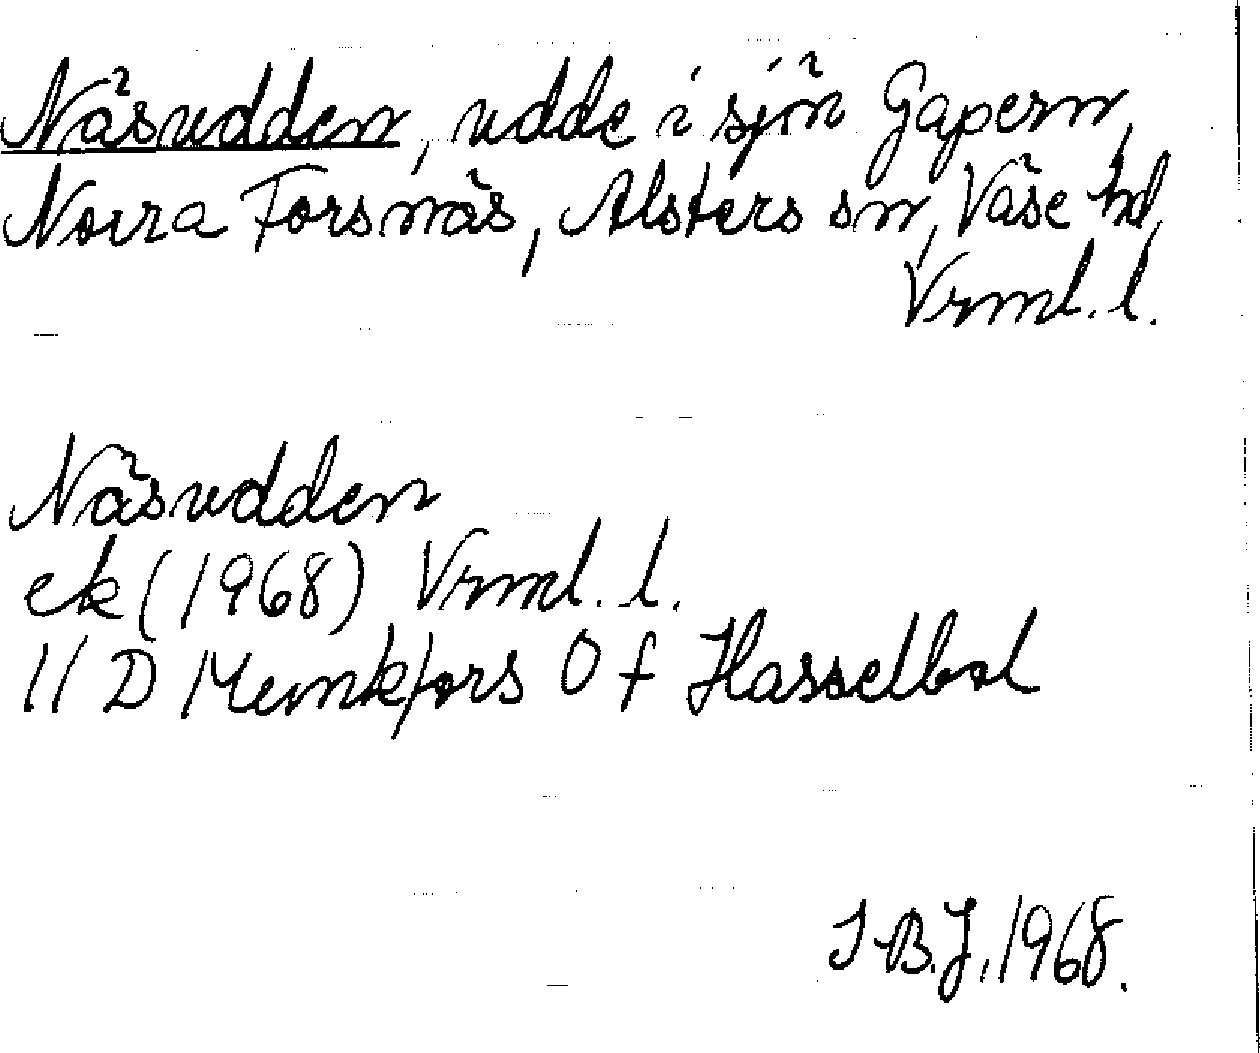 Näsudden, udde i sjön Gapern,
Norra Forsnäs, Alsters sn, Väse hd,
Vrml. l.
Näsudden
ek (1968) Vrml. l.
11 D Munkfors 0 f Hasselbol
I-B.J. 1968.